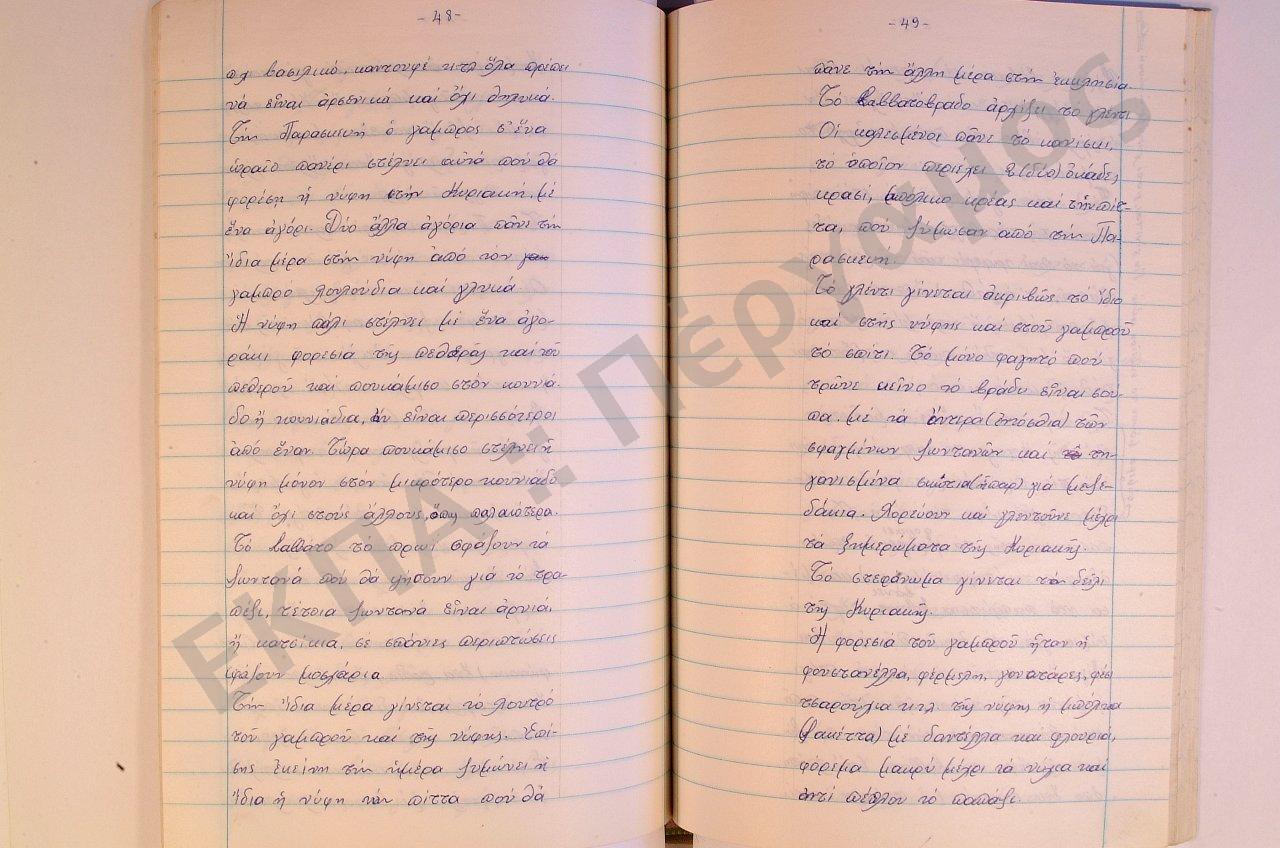 -48-
π.χ βασιλικό, κατουφέ κ.τ.λ ὅλα πρέπει
νά εἶναι ἀρσενικά καί ὄχι θηλυκά.
Τήν Παρασκευή ὁ γαμπρός σ' ἕνα
ὡραῖο πανέρι στέλνει αὐτά πού θά
φορέση ἡ νύφη στήν Κυριακή, μέ
ἕνα ἀγόρι. Δύο ἄλλα ἀγόρια πᾶνε τήν
ἴδια μέρα στήν νύφη ἀπό τόν
γαμπρό λουλούδια καί γλυκά.
Ἡ νύφη πάλι στέλνει μέ ἕνα ἀγο-
ράκι φορεσιά τῆς πεθερᾶς καί τοῦ
πεθεροῦ καί πουκάμισο στόν κουνιά-
δο ἤ κουνιάδια, ἄν εἶναι περισσότεροι
ἀπό ἕναν. Τώρα πουκάμισο στέλνει ἡ
νύφη μόνον στόν μικρότερο κουνιάδο
καί ὄχι στούς ἄλλους, ὅπως παλαιότερα.
Τό Σαββάτο τό πρωί σφάζουν τά
ζωντανά πού θά ψήσουν γιά τό τρα-
πέζι, τέτοια ζωντανά εἶναι ἀρνιά,
ἤ κατσίκια, σε σπάνιες περιπτώσεις
σφάζουν μοσχάρια
Τήν ἴδια μέρα γίνεται τό λουτρό
τοῦ γαμπροῦ καί τῆς νύφης. Ἐπί-
σης ἐκείνη τήν ἡμέρα ζυμώνει ἡ
ἴδια ἡ νύφη τήν πίττα πού θά
-49-
πᾶνε τήν ἄλλη μέρα στήν ἐκκλησία.
Τό Σαββατόβραδο ἀρχίζει τό γλέντι
Οἱ καλεσμένοι πᾶνε τό κανίσκι,
τό ὁποῖον περιέχει 2 (δύο) ὀκάδες
κρασί, μπόλικο κρέας καί τήν πίτ-
τα, πού ζύμωσαν ἀπό τήν Πα-
ρασκευή.
Τό γλέντι γίνεται ἀκριβῶς τό ἴδιο
καί στῆς νύφης καί στοῦ γαμπροῦ
τό σπίτι. Τό μόνο φαγητό πού
τρῶνε κεῖνο τό βράδυ εἶναι σού-
πα. μέ τά ἄντερα (ἐντόσθια) τῶν
σφαγμένων ζωντανῶν καί τη-
γανισμένα σκώτια (ἧπαρ) γιά μεζε-
δάκια. Χορεύουν καί γλεντοῦνε μέχρι
τά ξημερώματα τῆς Κυριακῆς.
Τό στεφάνωμα γίνεται τό δείλι
τῆς Κυριακῆς.
Ἡ φορεσιά τοῦ γαμπροῦ ἦταν ἡ
φουστανέλλα, φέρμελη, γονατάρες, φέσι
τσαρούχια κ.τ.λ. τῆς νύφης ἡ μπόλκα
(ζακέττα) μέ δαντέλλα καί φλουριά,
φόρεμα μακρύ μέχρι τά νύχια καί
ἀντί πέπλου τό παπάζι.
ΕΚΠΑ :: Πέργαμος